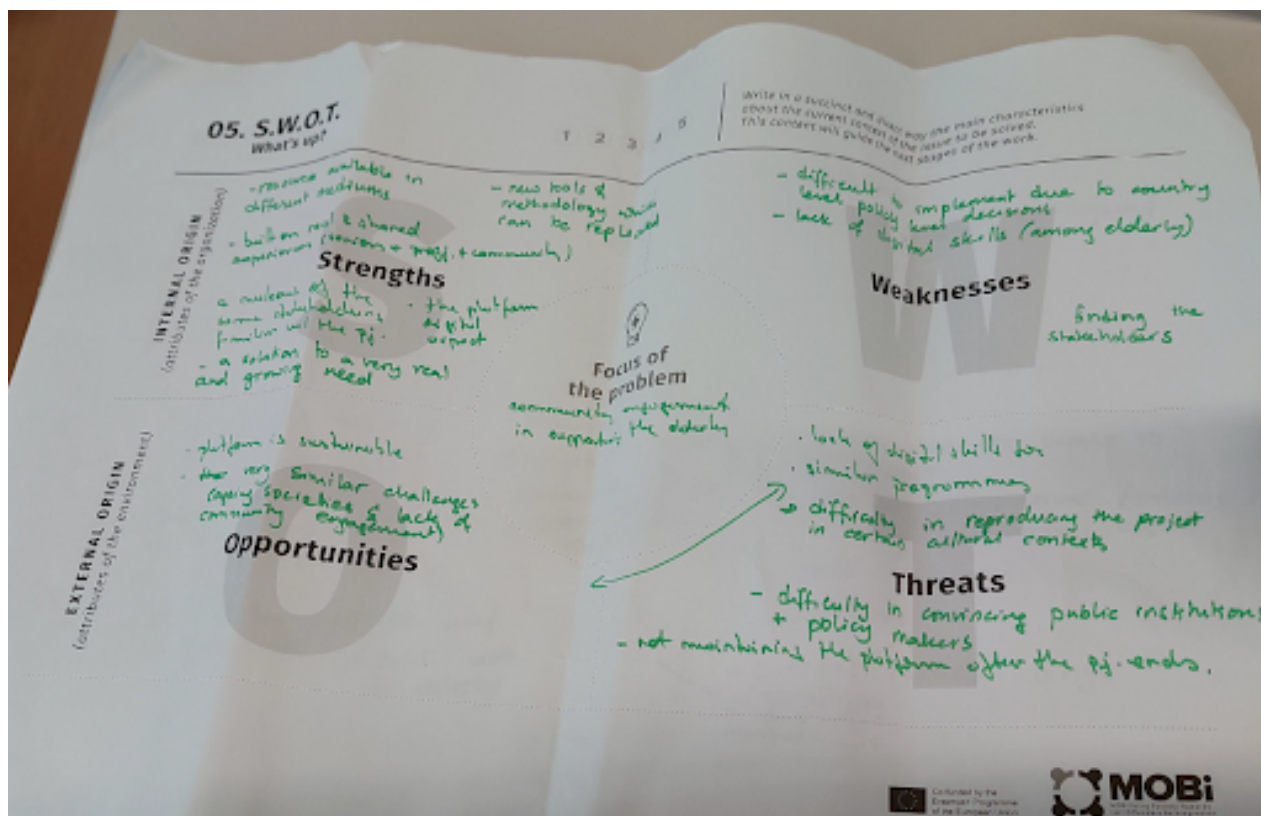 05. S.W.O.T.
What's up?
1 2 3 4 5
Write in a succinct and direct way the main characteristics
about the current context of the issue to be solved.
This content will guide the next stages of the work.
INTERNAL ORIGIN
(attributes of the organization)
- resource available in
different mediums
- built on real & shared
experiences + + community)
- new tools &
methodology which
can be replicated
Strengths
a nucleus of the
some stakeholders
familiar with the pj.
- a solution to a very real
and growing need
• the platform
digital
aspect
- difficult to implement due to country
level policy level decisions
- lack of digital skills (among elderly)
Weaknesses
finding the
stakeholders
Focus of
the problem
community engagement
in supporting the elderly
EXTERNAL ORIGIN
(attributes of the environment)
• platform is sustainable
• very similar challenges
societies & lack of
community engagement)
Opportunities
• lack of digital skills too
• similar programmes
→ difficulty in reproducing the project
in certain cultural contexts
Threats
- difficulty in convincing public institutions
+ policy makers
- not maintaining the platform after the pj. ends.
Co-funded by the
Erasmus+ Programme
of the European Union
MOBi